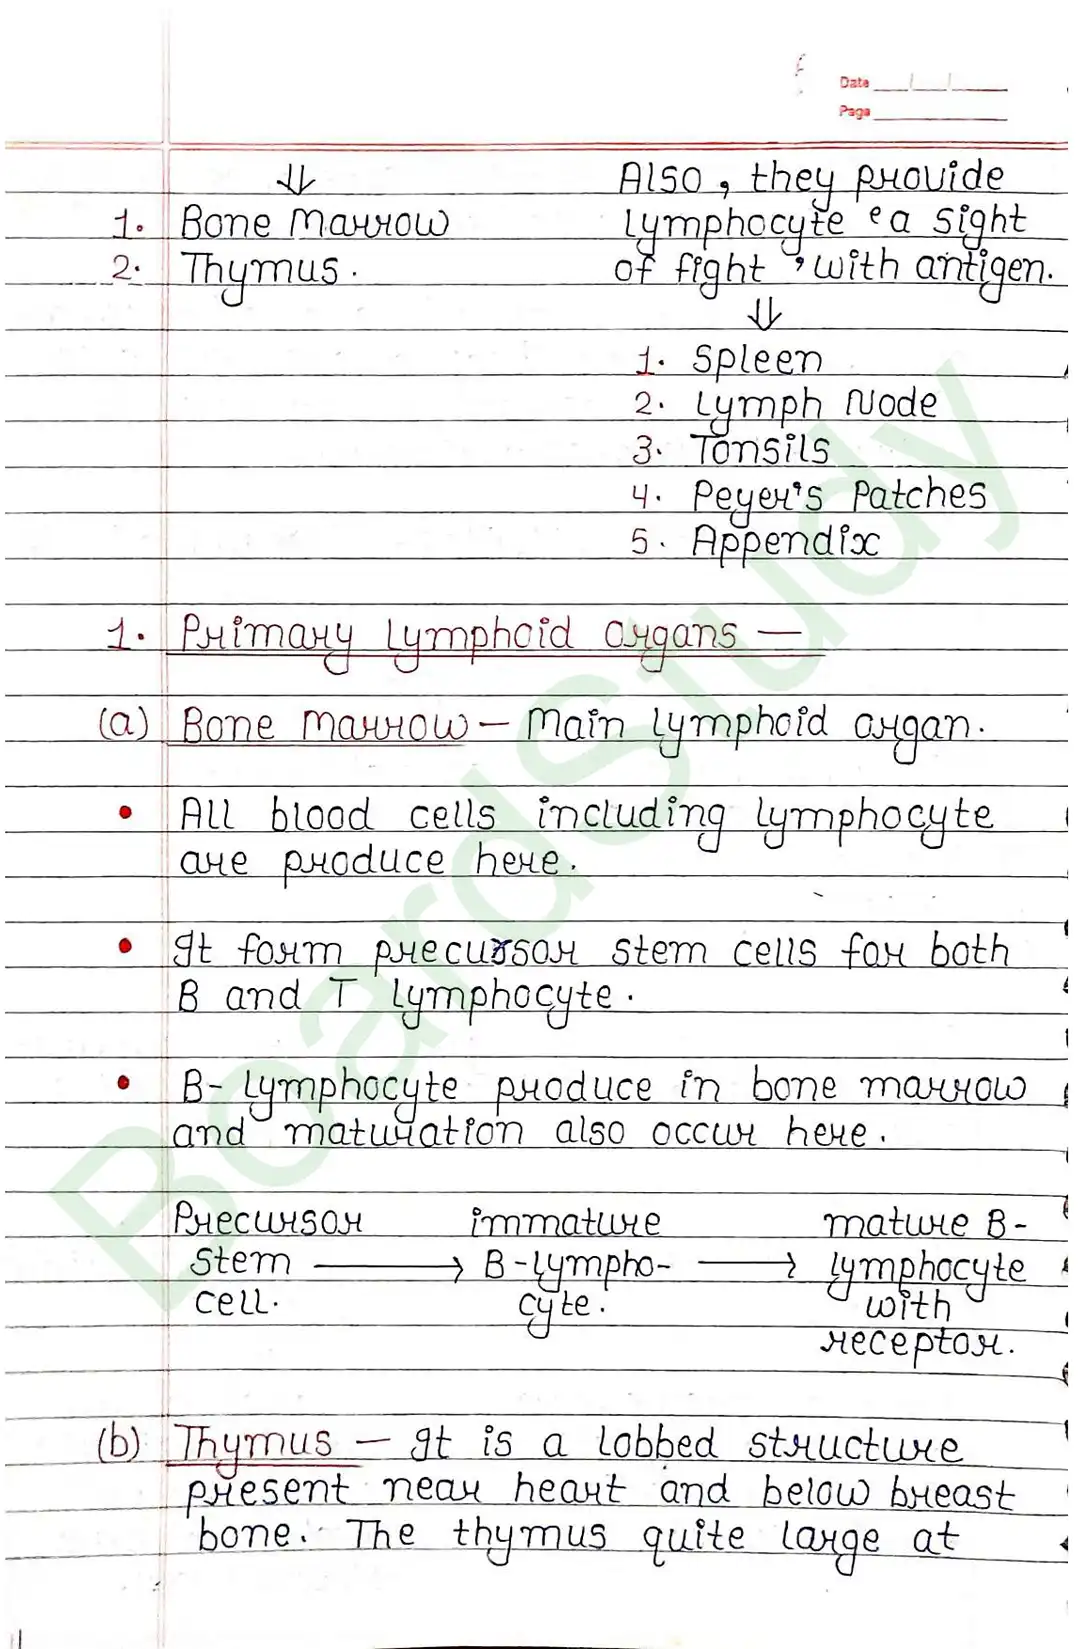 Date
Page
⇓
1. Bone Marrow
2. Thymus.
Also, they provide
lymphocyte e a sight
of fight, with antigen.
⇓
1. Spleen
2. Lymph Node
3. Tonsils
4. Peyer's Patches
5. Appendix
1. Primary lymphoid organs —
(a) Bone marrow — Main lymphoid organ.
• All blood cells including lymphocyte
are produce here.
• It form precursor stem cells for both
B and T lymphocyte.
• B- lymphocyte produce in bone marrow
and maturation also occur here.
Precursor immature mature B-
stem ⟶ B-lympho- ⟶ lymphocyte
cell. cyte. with
receptor.
(b) Thymus — It is a lobbed structure
present near heart and below breast
bone. The thymus quite large at
BoardStudy